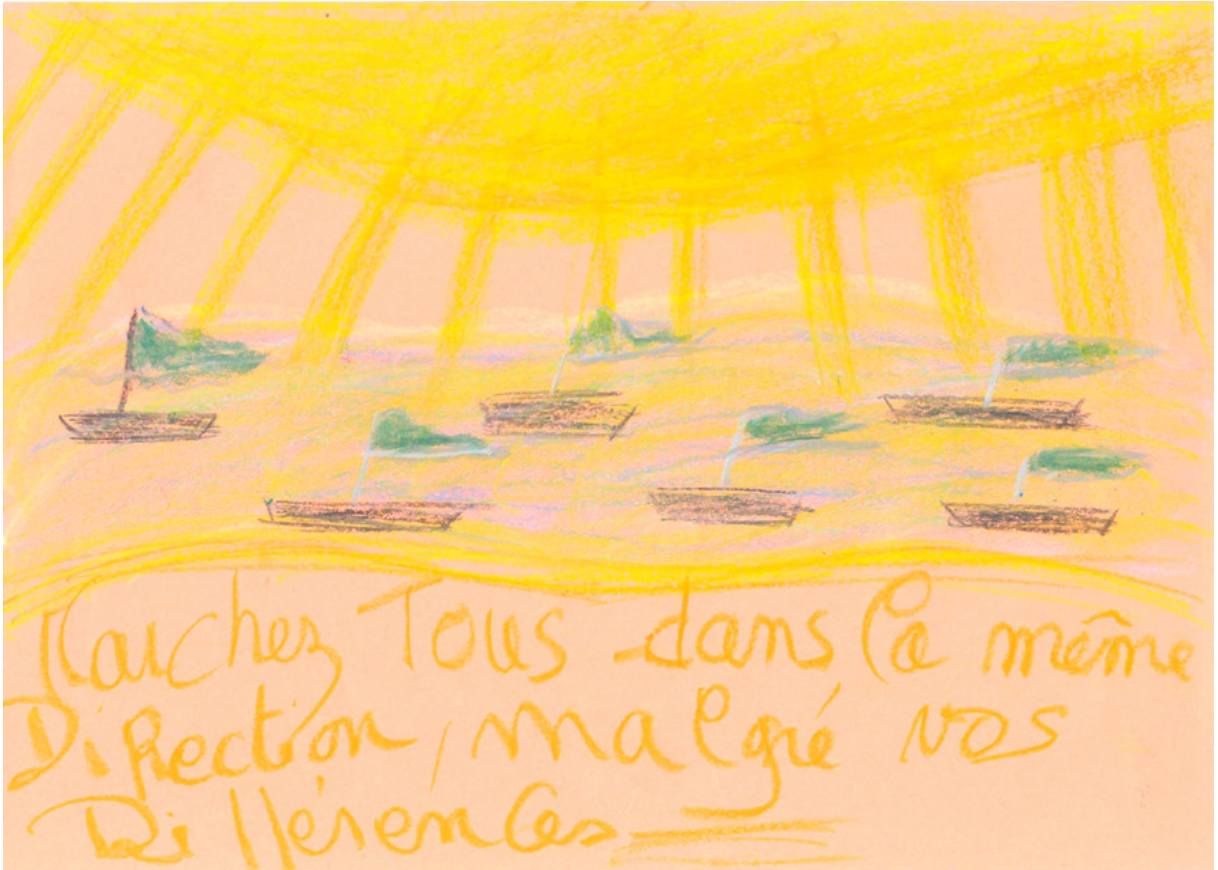 Marchez Tous dans la même
Direction, malgré nos
Différences